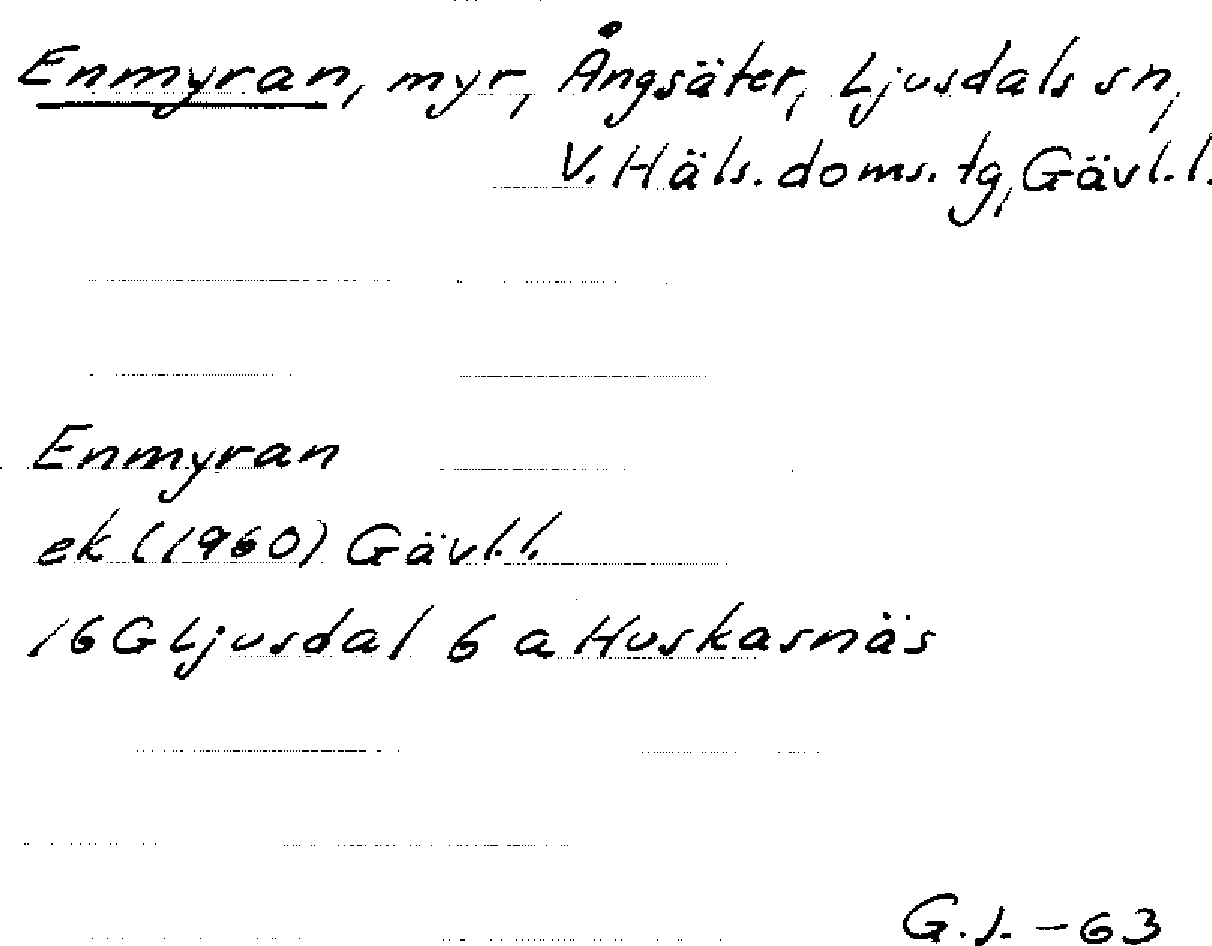 Enmyran, myr, Ångsäter, Ljusdals sn,
V. Häls. doms. tg, Gävl. l.
Enmyran
ek (1960) Gävl. l.
16 G Ljusdal 6 a Huskasnäs
G.J. -63